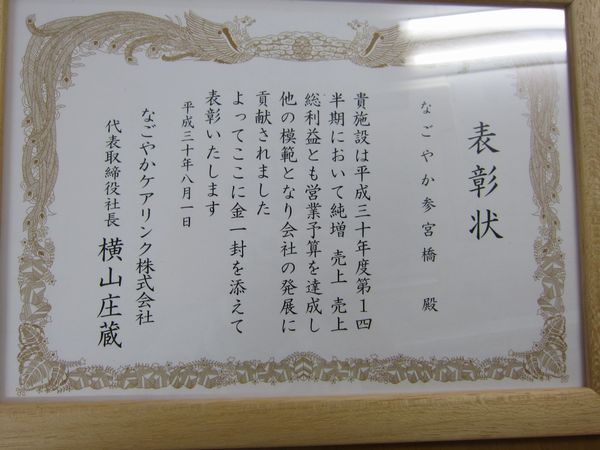 表彰状
なごやか参宮橋 殿
貴施設は平成三十年度第１四
半期において純増 売上 売上
総利益とも営業予算を達成し
他の模範となり会社の発展に
貢献されました
よってここに金一封を添えて
表彰いたします
平成三十年八月一日
なごやかケアリンク株式会社
代表取締役社長 横山庄蔵